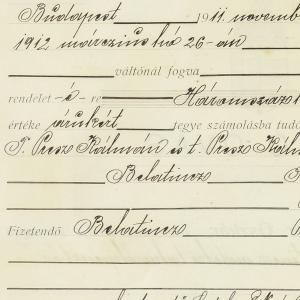 Budapest 1911 novemb
1912 márczius hó 26-án
váltónál fogva
rendelet -é- re Háromszáz
értéke árukért tegye számolásba tudó
T. Presz Kálmán és t. Presz Kálm
Belatincz
Fizetendő Belatincz